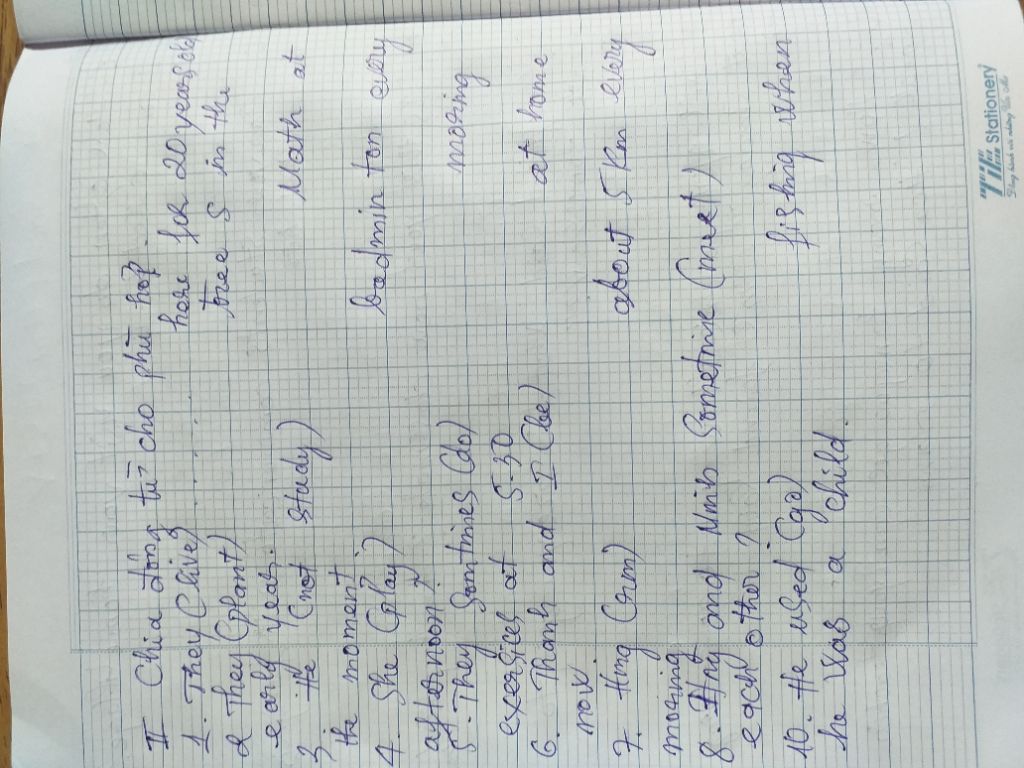 II Chia động từ cho phù hợp.
1. They (live) ........ here for 20 years.
2 They (plant) tree S in the
early year.
3. He (not study) Math at
the moment
4. She (play) badmin ton every
afternoon?
5. They Somtimes (do) mosing
exersices at 5.30
6. Thanh and I (be) at home
now.
7. Hung (sum) about 5 km every
mosing
8. and Sometime (meet)
each other?
10. He used (go) fishing when
he was a child.
TIE Stationery